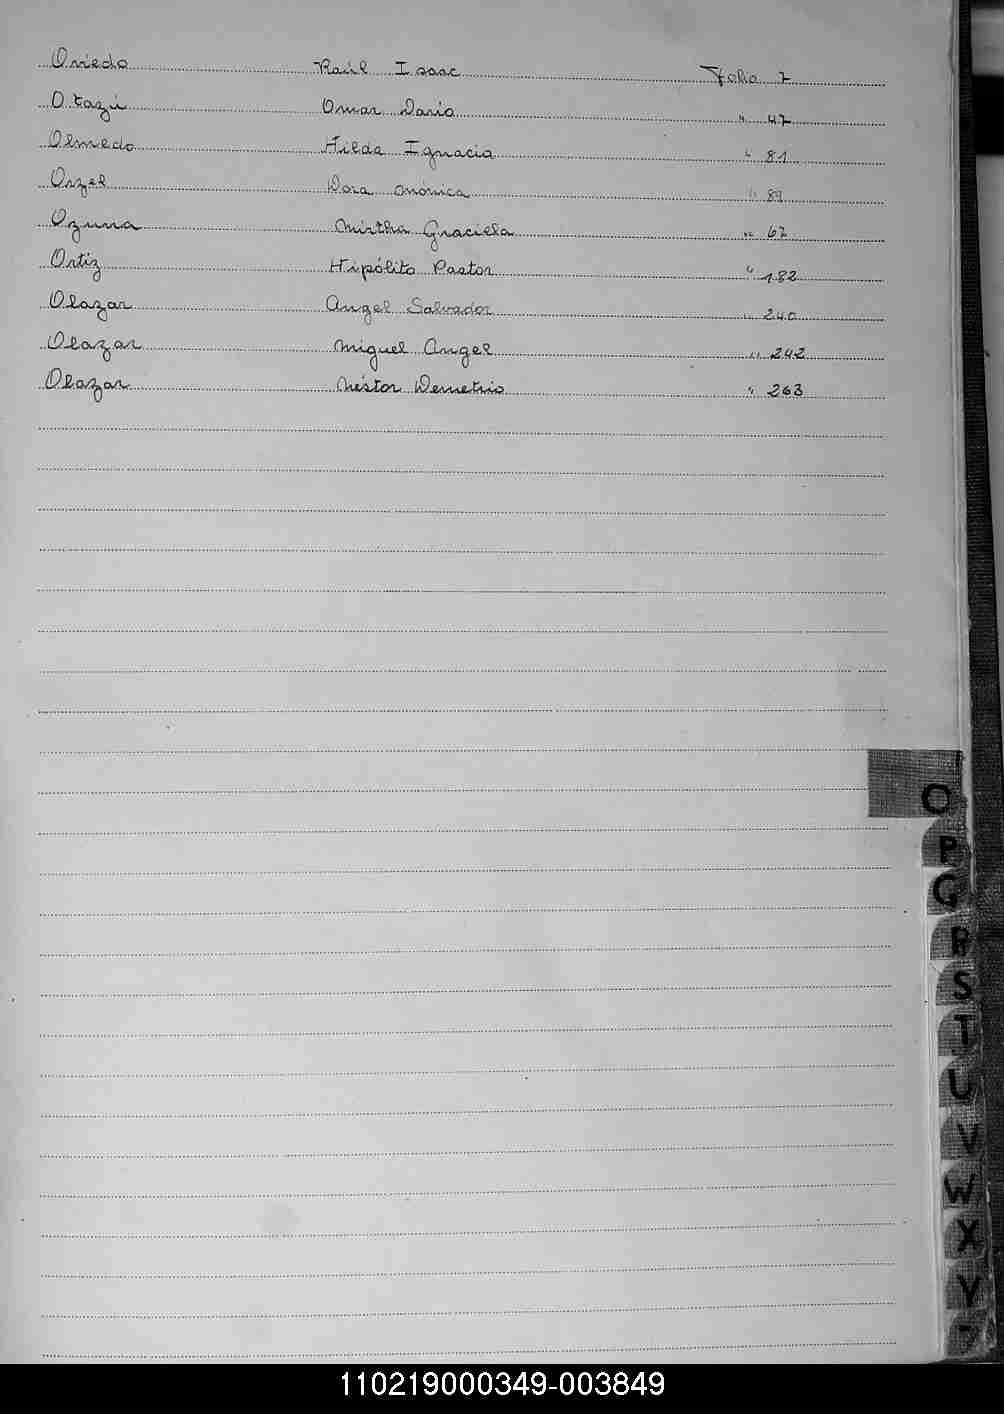 Oviedo Raúl Isaac Folio 7
Otazú Omar Dario " 47
Olmedo Hilda Ignacia " 81
Orzel Dora Mónica " 89
Ozuna Mirtha Graciela " 67
Ortiz Hipólito Pastor " 182
Olazar Angel Salvador " 240
Olazar Miguel Angel " 242
Olazar Néstor Demetrio " 263
O
P
Q
R
S
T
U
V
W
X
Y
Z
110219000349-003849